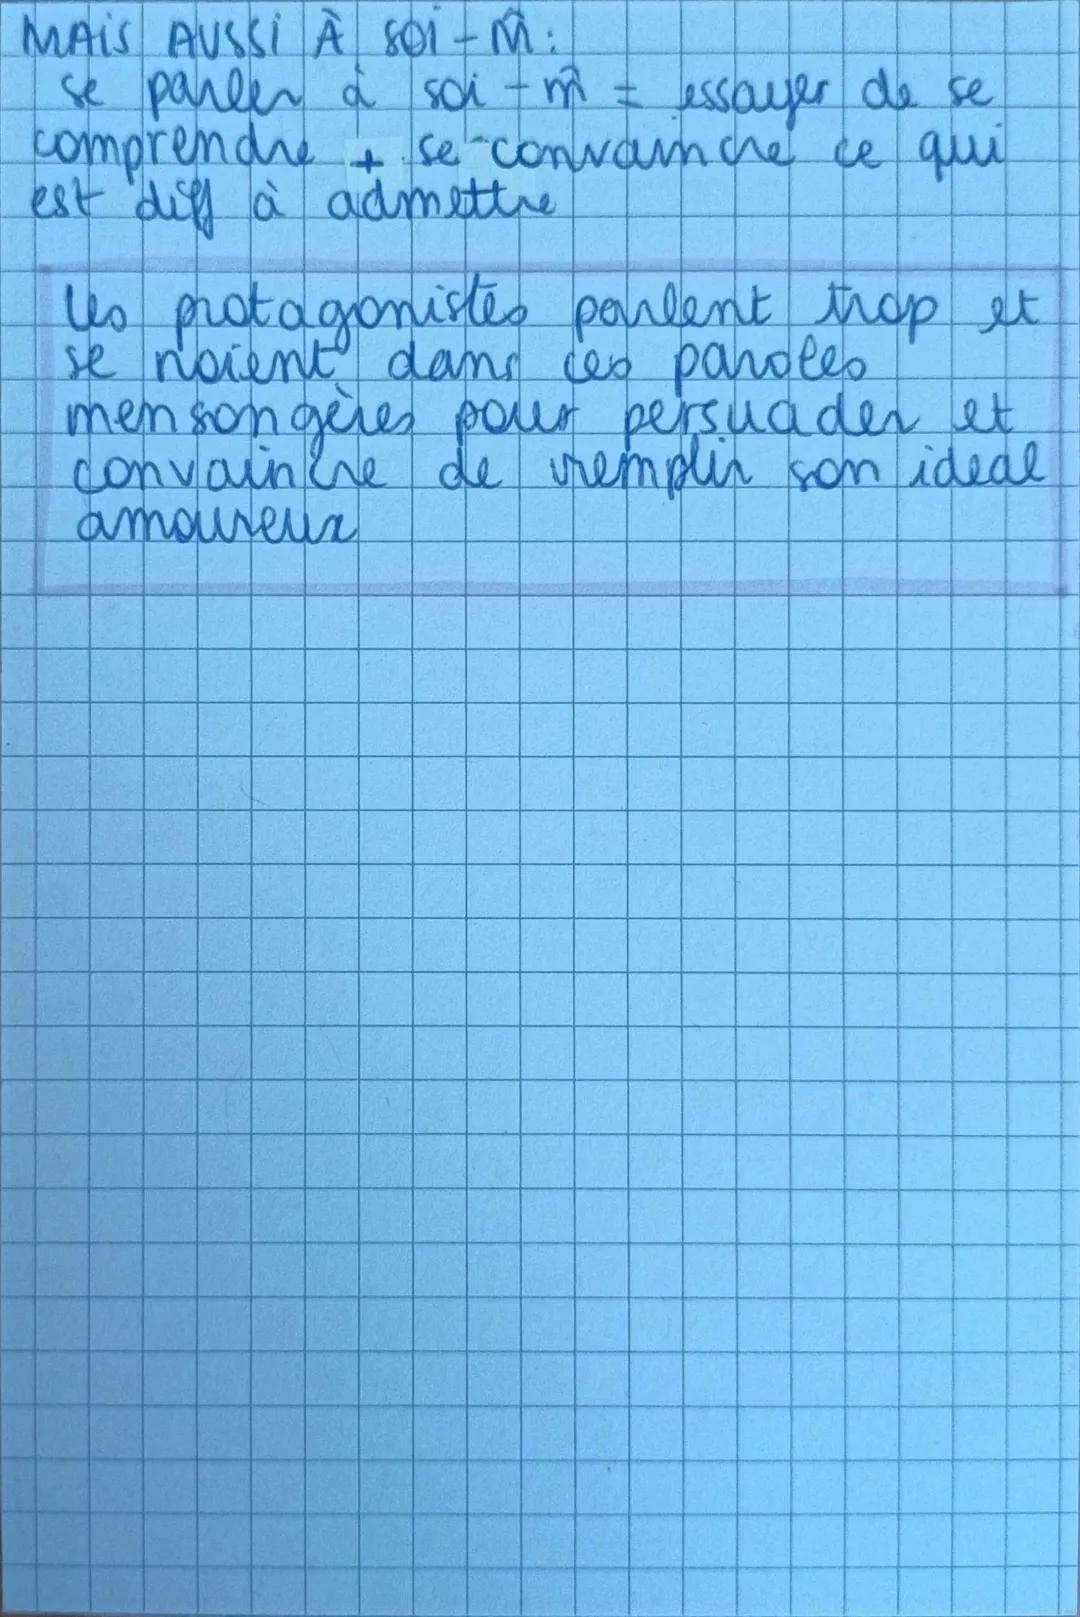 MAIS AUSSI À SOI-M̂:
se parler à soi-m̂ = essayer de se
comprendre + se convaincre ce qui
est diff à admettre
les protagonistes parlent trop et
se noient dans ces paroles
mensongères pour persuader et
convaincre de remplir son idéal
amoureux